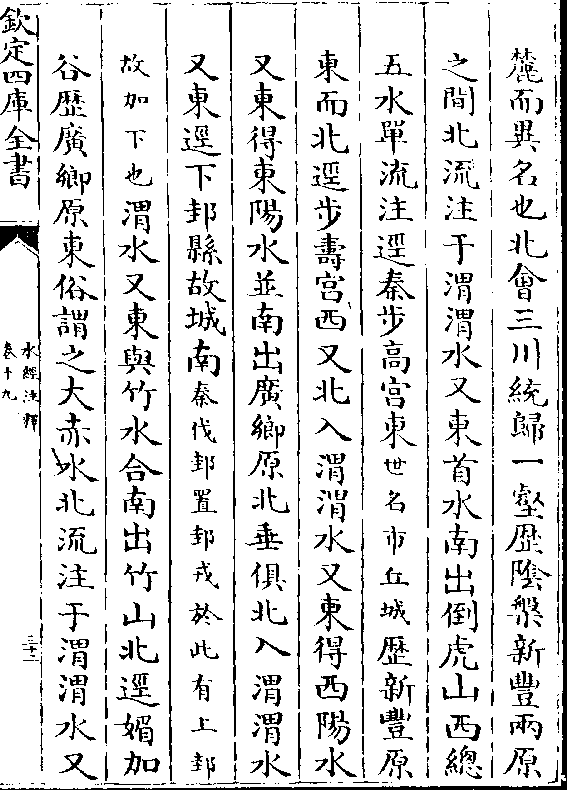 麓而異名也北會三川統歸一壑歷陰槃新豐兩原
之間北流注于渭渭水又東首水南出倒虎山西總
五水單流注逕秦步高宫東世名市丘城歷新豐原
東而北逕步壽宫西又北入渭渭水又東得西陽水
又東得東陽水並南出廣鄉原北垂俱北入渭渭水
又東逕下邽縣故城南秦伐邽置邽戎於此有上邽
故加下也渭水又東與竹水合南出竹山北逕媚加
谷歷廣鄉原東俗謂之大赤水北流注于渭渭水又
欽定四庫全書
水經注釋
卷十九
三十二